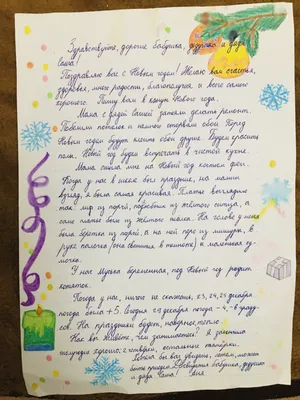 Здравствуйте, дорогие бабушка, дедушка и дядя
Саша!
Поздравляю вас с Новым годом! Желаю вам счастья,
здоровья, много радости, благополучия и всего самого
хорошего. Пишу вам в канун Нового года.
Мама с дядей Сашей затеяли делать ремонт.
Побелили потолок и начали отмывать обои. Перед
Новым годом будут клеить обои другие. Будем красить
полы. Новый год будем встречать в чистой кухне.
Мама сшила мне на Новый год костюм феи.
Когда у нас в школе был праздник, на мамин
взгляд, я была самая красивая. Платье выглядело
как из парчи,
само платье было из жёлтого шёлка. На голове у меня
была беретка из парчи, а на ней перо из мишуры, в
руке палочка (она светится в темноте) и маленькая су-
мочка.
У нас Муська беременная, под Новый год родит
котяток.
Погода у нас, ничего не скажешь, 23, 24, 25 декабря
погода была +5. Сегодня 27 декабря погода -4, -5 граду-
сов. На праздники будет, наверное, тепло.
Как вы живёте, чем занимаетесь? Я закончила
четверть хорошо: 2 четвёрки, остальные пятёрки.
Скоро вы нас увидите, летом, может
быть приедем. До свидания бабушка, дедушка
и дядя Саша! Аня